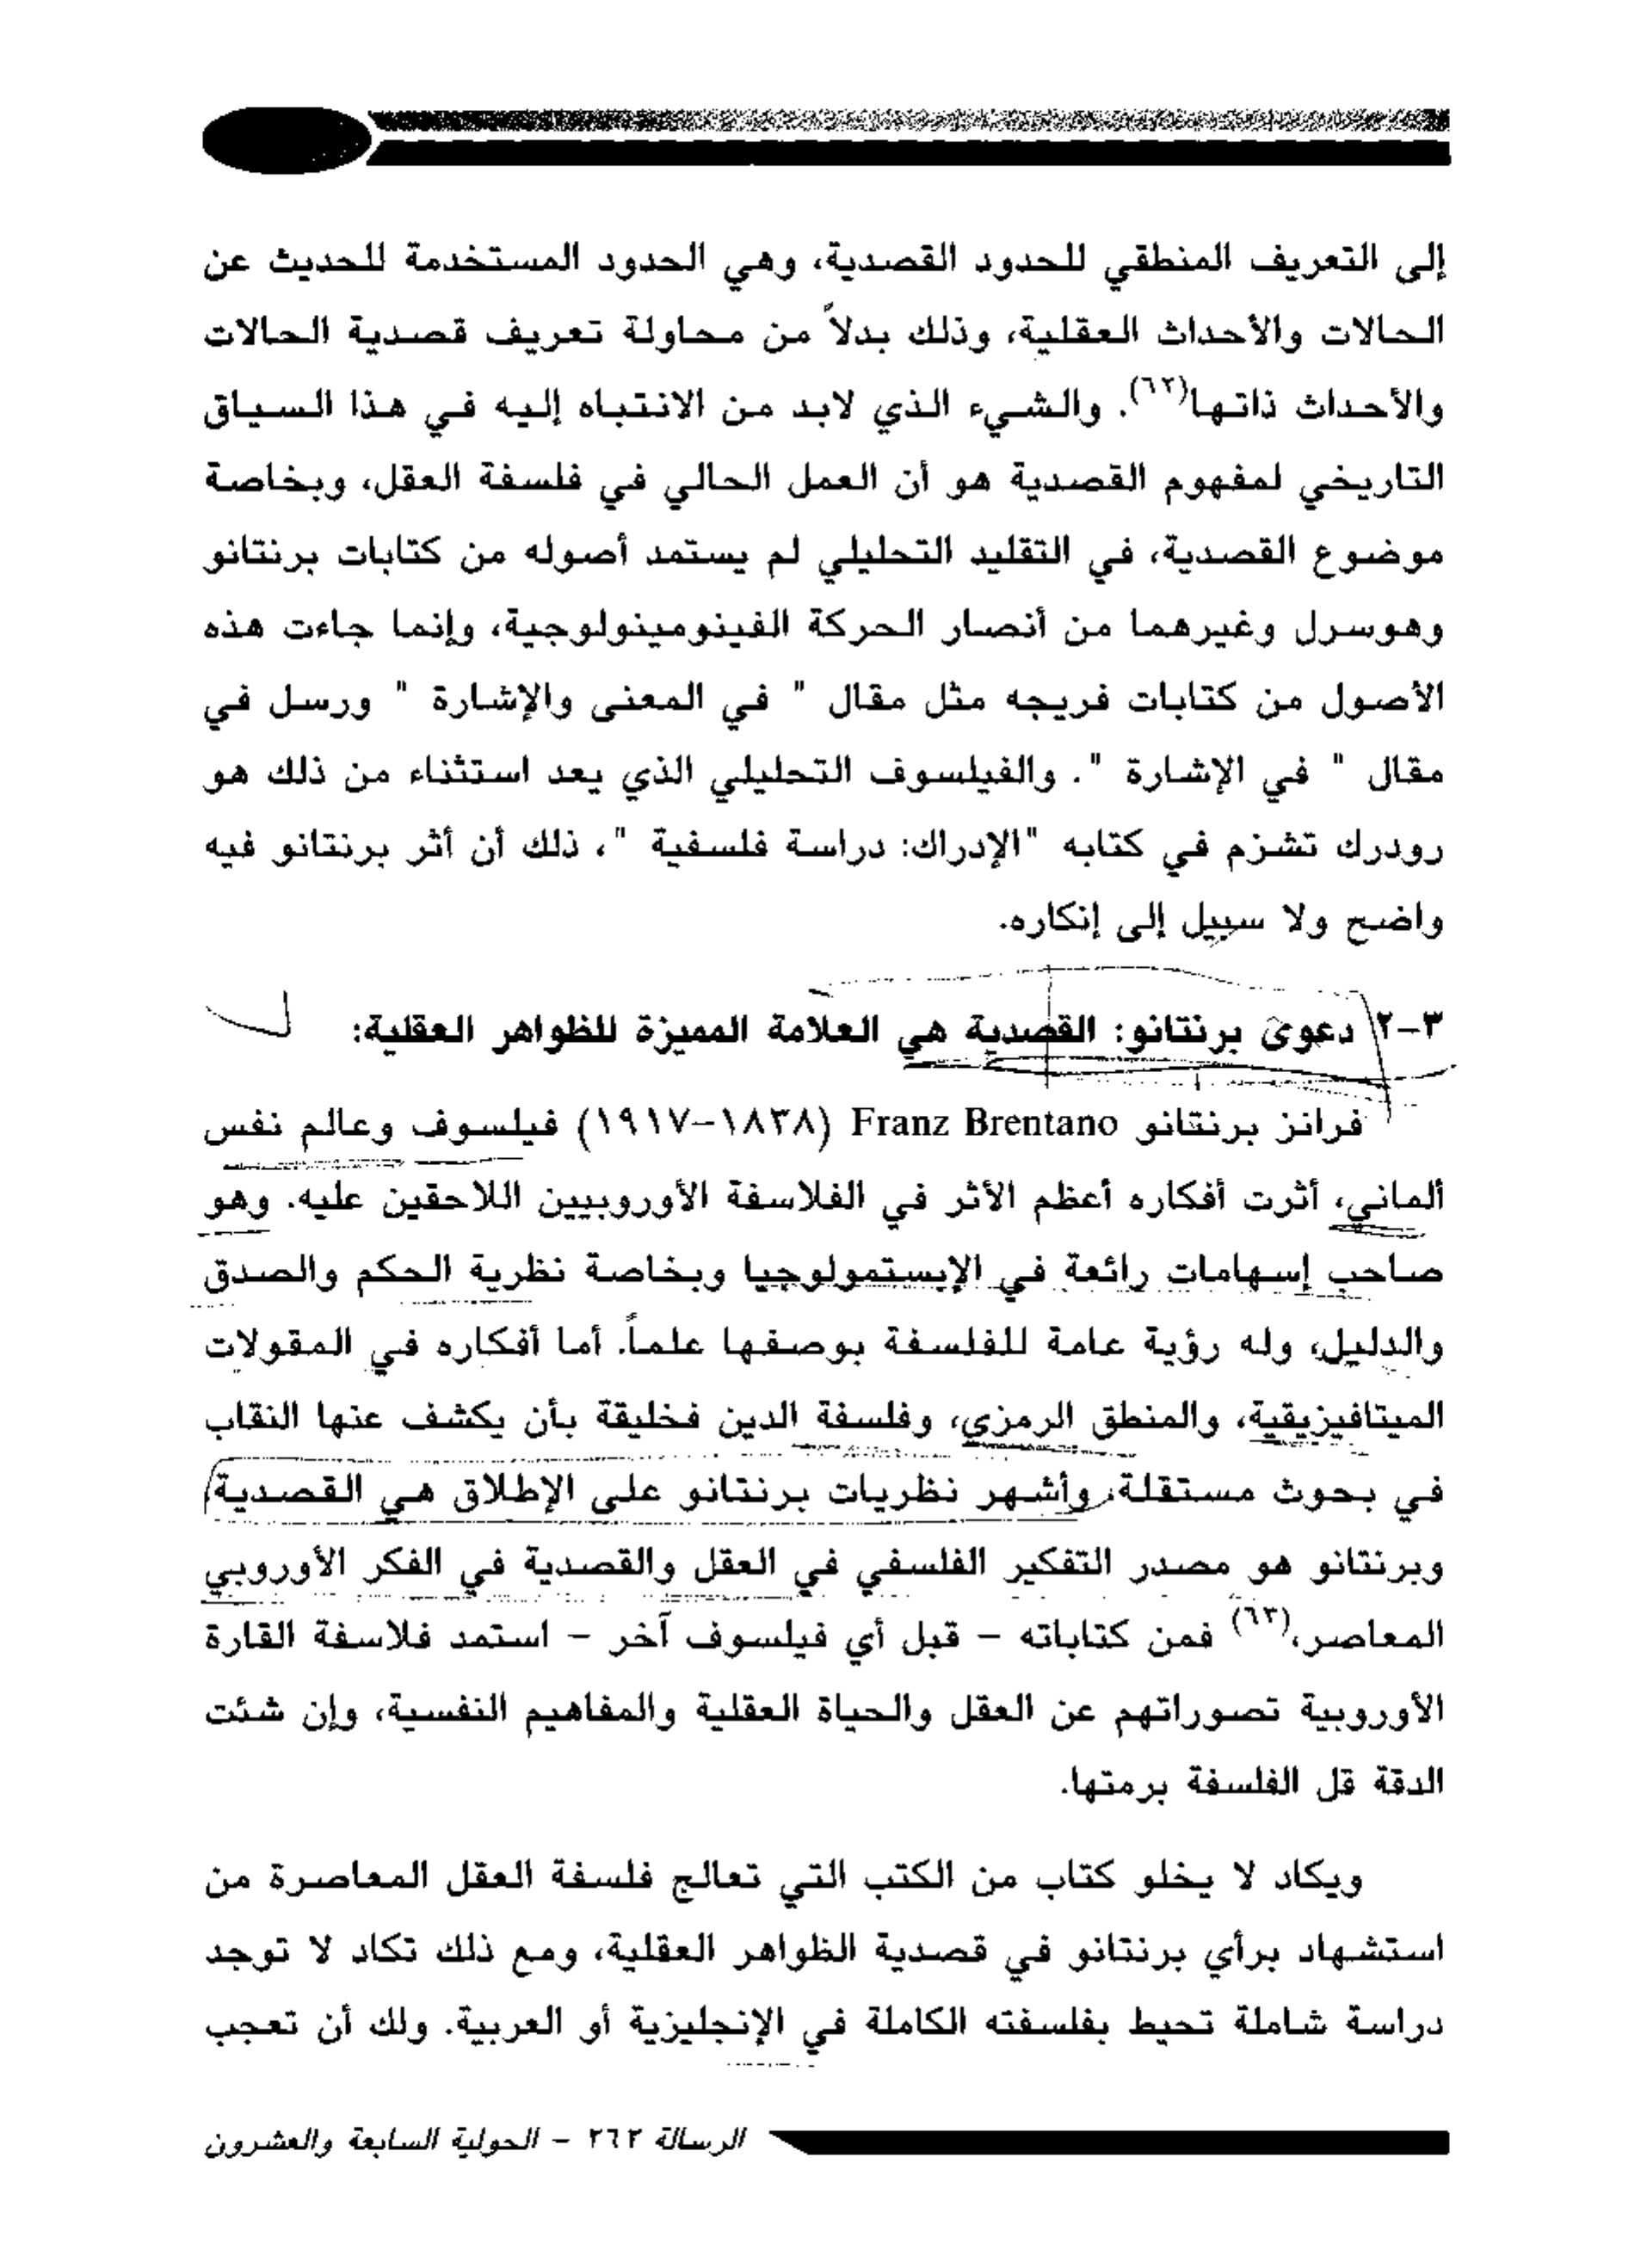 إلى التعريف المنطقي للحدود القصدية، وهي الحدود المستخدمة للحديث عن
الحالات والأحداث العقلية، وذلك بدلاً من محاولة تعريف قصدية الحالات
والأحداث ذاتها(٦٢). والشيء الذي لابد من الانتباه إليه في هذا السياق
التاريخي لمفهوم القصدية هو أن العمل الحالي في فلسفة العقل، وبخاصة
موضوع القصدية، في التقليد التحليلي لم يستمد أصوله من كتابات برنتانو
وهوسرل وغيرهما من أنصار الحركة الفينومينولوجية، وإنما جاءت هذه
الأصول من كتابات فريجه مثل مقال " في المعنى والإشارة " ورسل في
مقال " في الإشارة ". والفيلسوف التحليلي الذي يعد استثناء من ذلك هو
رودرك تشزم في كتابه "الإدراك: دراسة فلسفية "، ذلك أن أثر برنتانو فيه
واضح ولا سبيل إلى إنكاره.
٣-٢ دعوى برنتانو: القصدية هي العلامة المميزة للظواهر العقلية:
فرانز برنتانو Franz Brentano (١٨٣٨-١٩١٧) فيلسوف وعالم نفس
ألماني، أثرت أفكاره أعظم الأثر في الفلاسفة الأوروبيين اللاحقين عليه. وهو
صاحب إسهامات رائعة في الإبستمولوجيا وبخاصة نظرية الحكم والصدق
والدليل، وله رؤية عامة للفلسفة بوصفها علماً. أما أفكاره في المقولات
الميتافيزيقية، والمنطق الرمزي، وفلسفة الدين فخليقة بأن يكشف عنها النقاب
في بحوث مستقلة، وأشهر نظريات برنتانو على الإطلاق هي القصدية
وبرنتانو هو مصدر التفكير الفلسفي في العقل والقصدية في الفكر الأوروبي
المعاصر،(٦٣) فمن كتاباته - قبل أي فيلسوف آخر - استمد فلاسفة القارة
الأوروبية تصوراتهم عن العقل والحياة العقلية والمفاهيم النفسية، وإن شئت
الدقة قل الفلسفة برمتها.
ويكاد لا يخلو كتاب من الكتب التي تعالج فلسفة العقل المعاصرة من
استشهاد برأي برنتانو في قصدية الظواهر العقلية، ومع ذلك تكاد لا توجد
دراسة شاملة تحيط بفلسفته الكاملة في الإنجليزية أو العربية. ولك أن تعجب
الرسالة ٢٦٢ - الحولية السابعة والعشرون